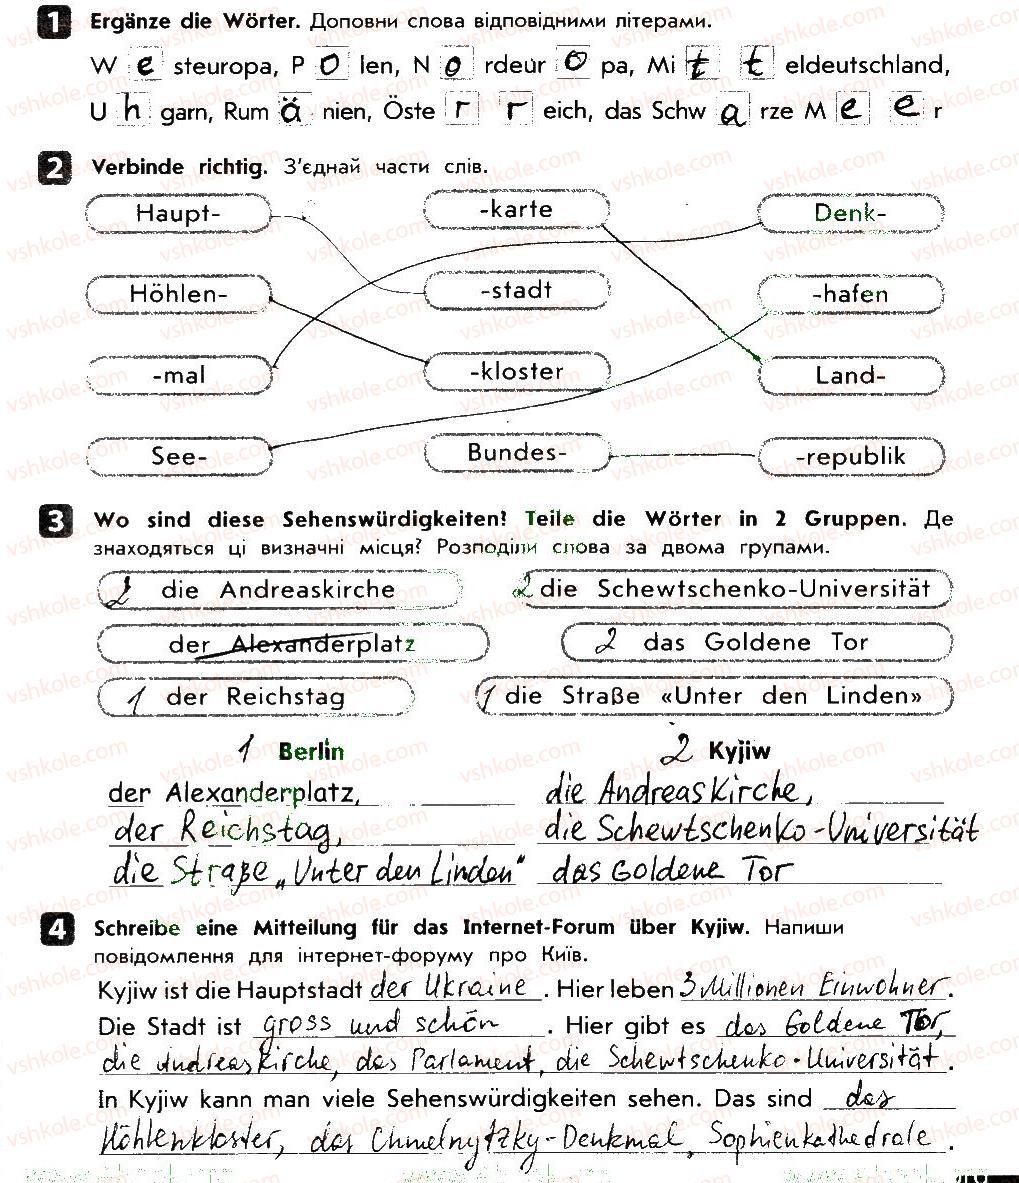 1 Ergänze die Wörter. Доповни слова відповідними літерами.
W e steuropa, P o len, N o rdeur o pa, Mi t t eldeutschland,
U h garn, Rum ä nien, Öste r r eich, das Schw a rze M e e r
2 Verbinde richtig. З'єднай части слів.
Haupt- -karte Denk-
Höhlen- -stadt -hafen
-mal -kloster Land-
See- Bundes- -republik
3 Wo sind diese Sehenswürdigkeiten? Teile die Wörter in 2 Gruppen. Де
знаходяться ці визначні місця? Розподіли слова за двома групами.
2 die Andreaskirche 2 die Schewtschenko-Universität
der Alexanderplatz 2 das Goldene Tor
1 der Reichstag 1 die Straße «Unter den Linden»
1 Berlin 2 Kyjiw
der Alexanderplatz, die Andreaskirche,
der Reichstag, die Schewtschenko-Universität
die Straße „Unter den Linden" das Goldene Tor
4 Schreibe eine Mitteilung für das Internet-Forum über Kyjiw. Напиши
повідомлення для інтернет-форуму про Київ.
Kyjiw ist die Hauptstadt der Ukraine. Hier leben 3 Millionen Einwohner.
Die Stadt ist gross und schön. Hier gibt es das Goldene Tor,
die Andreaskirche, das Parlament, die Schewtschenko-Universität.
In Kyjiw kann man viele Sehenswürdigkeiten sehen. Das sind das
Höhlenkloster, das Chmelnytzky-Denkmal, Sophienkathedrale.